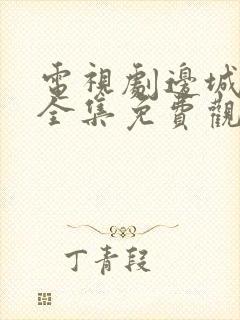 電視劇邊城
全集免費觀
丁青段